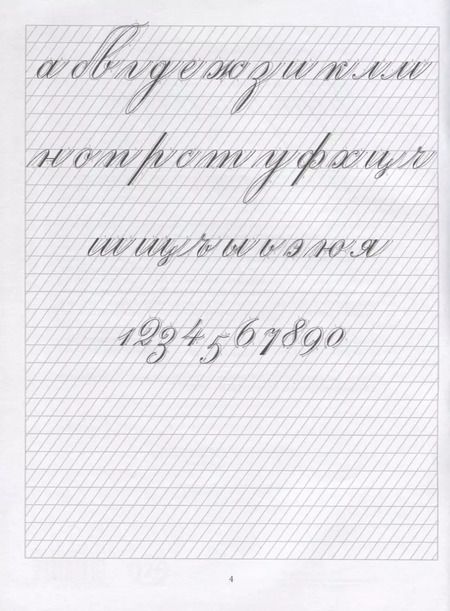 а б в г д е ж з и к л м
н о п р с т у ф х ц ч
ш щ ъ ы ь э ю я
1 2 3 4 5 6 7 8 9 0
4